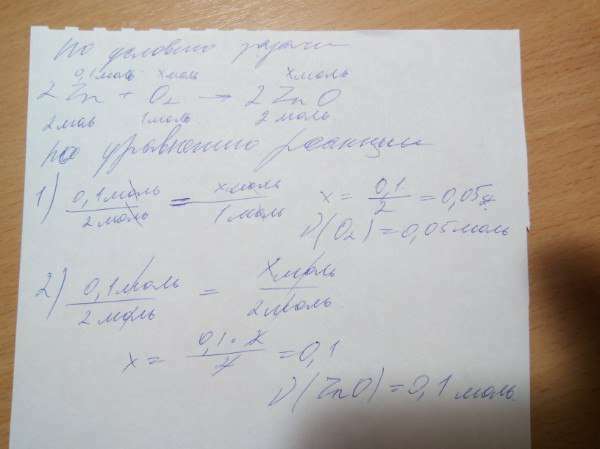 По условию задачи
0,1моль х моль х моль
2Zn + O₂ → 2ZnO
2моль 1моль 2 моль
по уравнению реакции
1) 0,1моль/2моль = х моль/1моль х = 0,1/2 = 0,05
ν(O₂) = 0,05 моль
2) 0,1моль/2моль = х моль/2моль
х = 0,1·2/2 = 0,1
ν(ZnO) = 0,1 моль